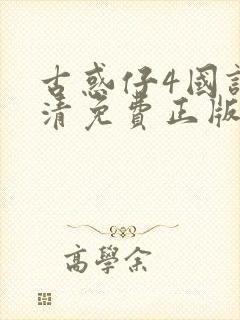 古惑仔4國
清免費正版
高學余